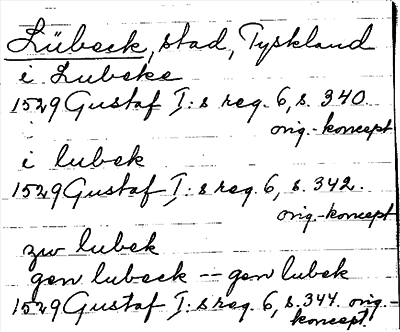 Lübeck, stad, Tyskland
i Lubeke
1529 Gustaf I:s reg. 6, s. 340.
orig.-koncept
i lubek
1529 Gustaf I:s reg. 6, s. 342.
orig.-koncept
zw lubek
gen lubeck -- gen lubek
1529 Gustaf I:s reg. 6, s. 344. orig.-
koncept.